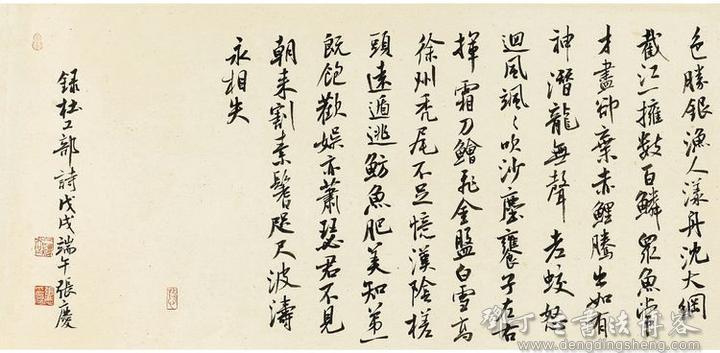 色勝銀漁人漾舟沈大網
截江一擁數百鱗眾魚常
才盡卻棄赤鯉騰出如有
神潛龍無聲老蛟怒
迴風颯々吹沙塵饔子左右
揮霜刀鱠飛金盤白雪高
徐州禿尾不足憶漢陰槎
頭遠遁逃魴魚肥美知第一
既飽歡娛亦蕭瑟君不見
朝来割素鬐咫尺波濤
永相失
録杜工部詩戊戌端午張慶
邓丁生书法博客
www.dengdingsheng.com